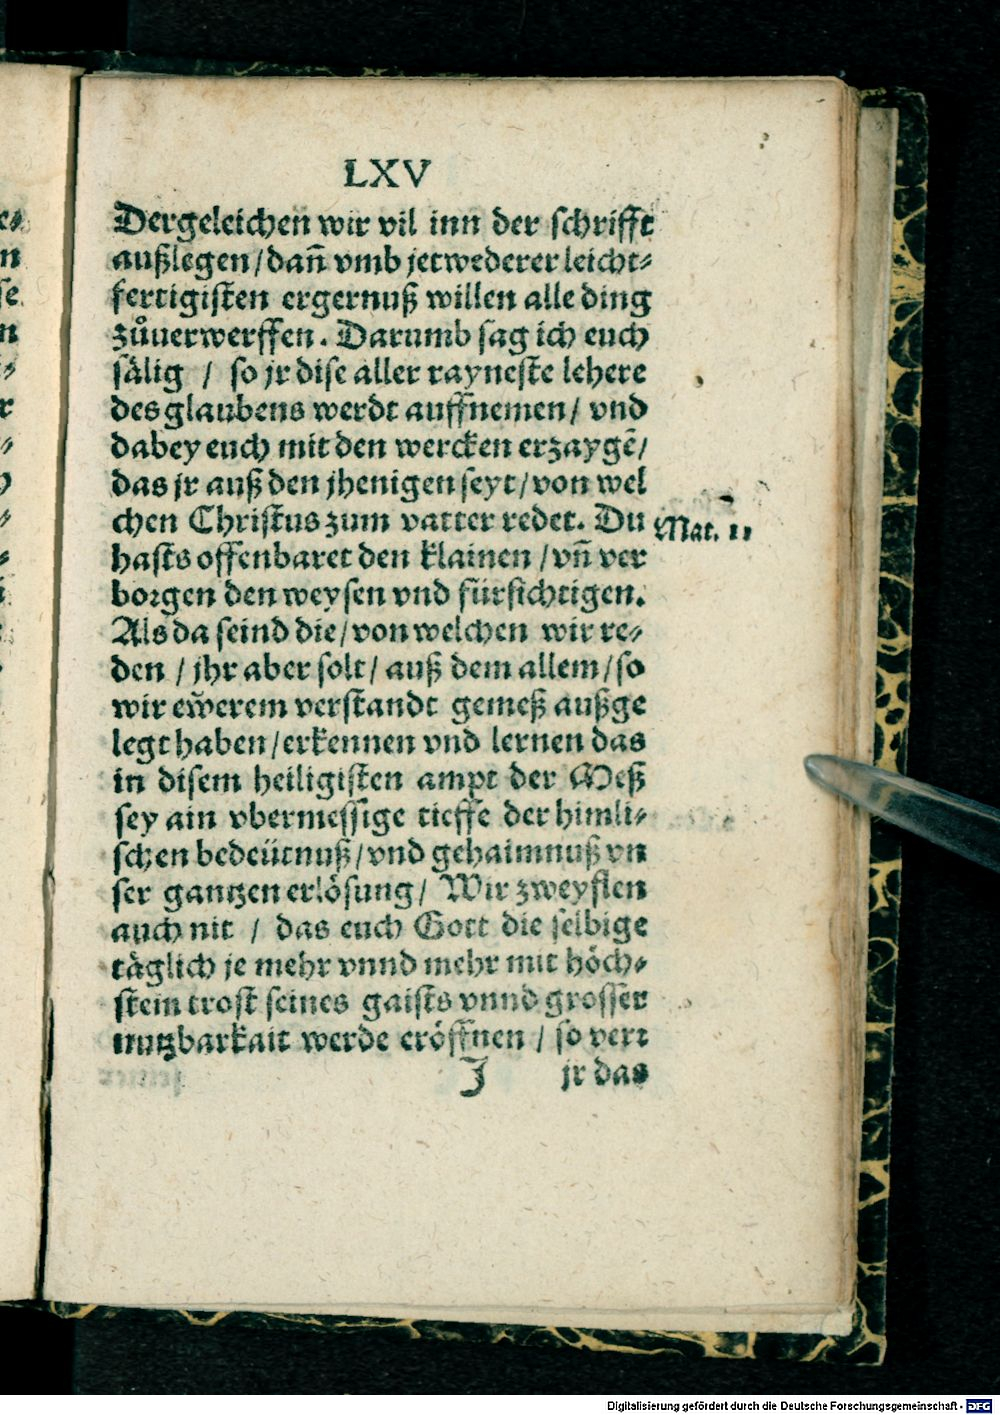 LXV
Dergeleichen wir vil inn der schrifft
außlegen/dañ vmb jetwederer leicht⸗
fertigisten ergernuß willen alle ding
zůuerwerffen. Darumb sag ich euch
sälig / so jr dise aller rayneste lehere
des glaubens werdt auffnemen/ vnd
dabey euch mit den wercken erzaygẽ/
das jr auß den jhenigen seyt/von wel
chen Christus zum vatter redet. Du
Mat. 11
hasts offenbaret den klainen /vñ ver
borgen den weysen vnd fürsichtigen.
Als da seind die/von welchen wir re⸗
den / jhr aber solt/ auß dem allem/so
wir ew̃erem verstandt gemeß außge
legt haben/erkennen vnd lernen das
in disem heiligisten ampt der Meß
sey ain vbermessige tieffe der himli⸗
schen bedeütnuß/vnd gehaimnuß vn
ser gantzen erlösung/ Wir zweyflen
auch nit / das euch Gott die selbige
täglich je mehr vnnd mehr mit höch⸗
stem trost seines gaists vnnd grosser
nutzbarkait werde eröffnen / so verr
J jr das
Digitalisierung gefördert durch die Deutsche Forschungsgemeinschaft - DFG